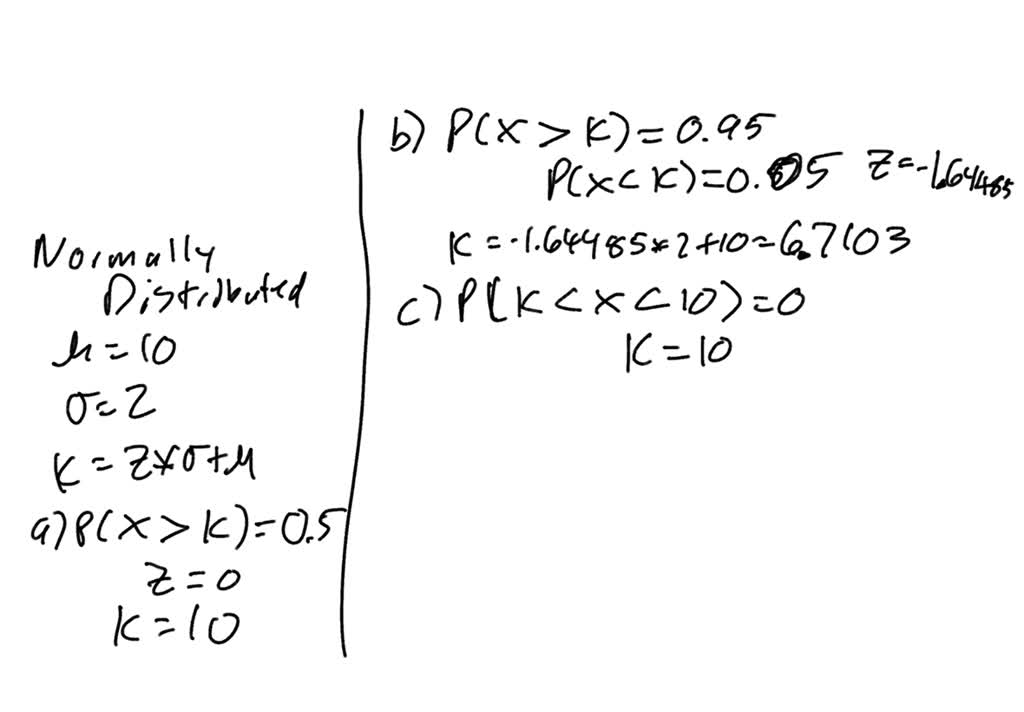 Normally
Distributed
μ=10
σ=2
K=Z*σ+μ
a) P(X>K)=0.5
Z=0
K=10
b) P(X>K)=0.95
P(X<K)=0.05 Z=-1.64485
K=-1.64485*2+10=6.7103
c) P(K<X<10)=0
K=10